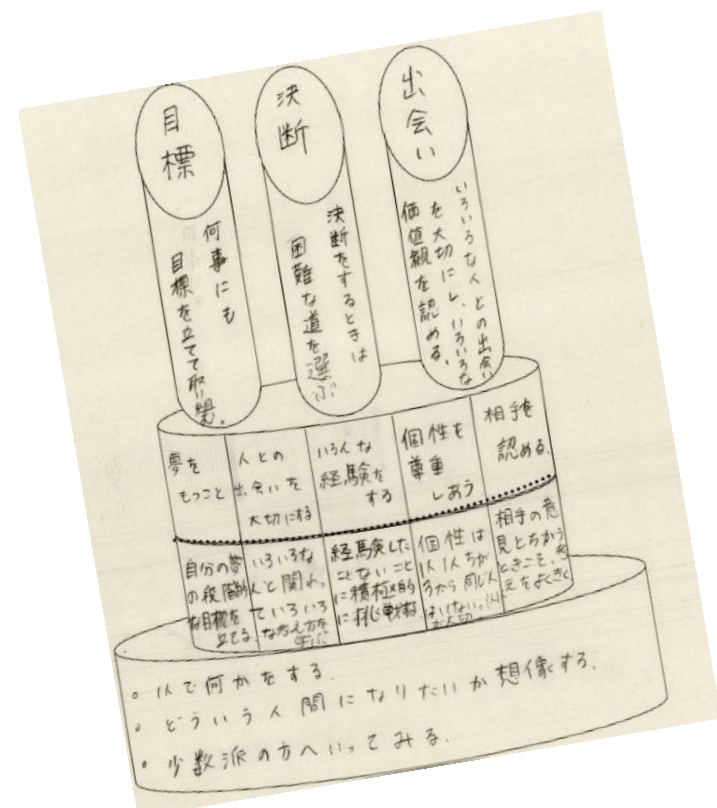 目
標
決
断
出
会
い
何事にも
目標を立てて取り組む。
決断をするときは
困難な道を選ぶ
いろいろな人との出会い
を大切にし、いろいろな
価値観を認める。
夢を
もつこと
人との
出会いを
大切にする
いろんな
経験を
する
個性を
尊重
しあう
相手を
認める。
自分の夢
の段階的
な目標を
立てる。
いろいろな
人と関わっ
ていろいろ
な考え方を
経験した
ことないこと
に積極的
に挑戦する。
個性は
1人1人ちが
うから同じ人
はいない。1人1人
が大切
相手の意
見とちがう
ときこそ、考
えをよくきく
。1人で何かをする。
。どういう人間になりたいか想像する。
。少数派の方へいってみる。